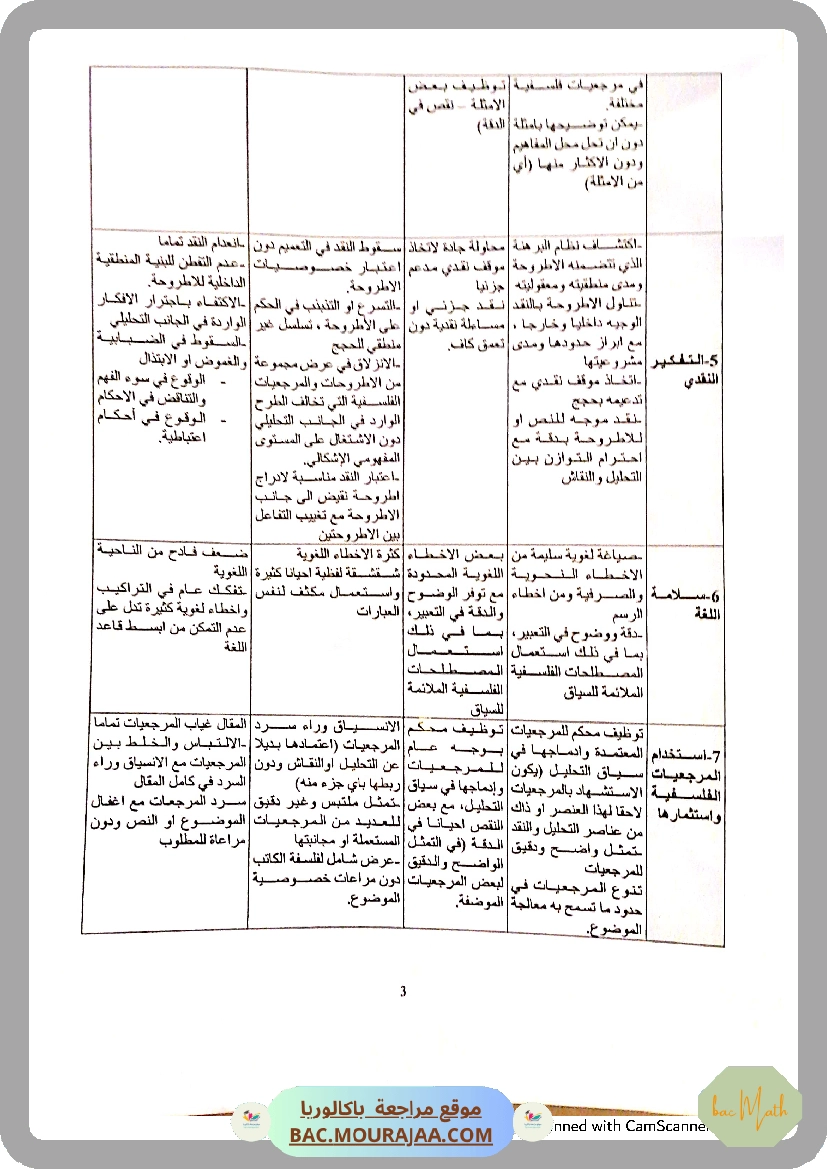 في مرجعيات فلسفية
مختلفة.
-يمكن توضيحها بامثلة
دون ان تحل محل المفاهيم
ودون الاكثار منها (أي
من الامثلة)
توظيف بعض
الامثلة – نقص في
الدقة)
5-التفكير
النقدي
-اكتشاف نظام البرهنة
الذي تتضمنه الاطروحة
ومدى منطقيته ومعقوليته
-تناول الاطروحة بالنقد
الوجيه داخليا وخارجا ،
مع ابراز حدودها ومدى
مشروعيتها
-اتخاذ موقف نقدي مع
تدعيمه بحجج
-نقد موجه للنص او
للاطروحة بدقة مع
احترام التوازن بين
التحليل والنقاش
محاولة جادة لاتخاذ
موقف نقدي مدعم
جزئيا
نقد جزئي او
مساءلة نقدية دون
تعمق كاف.
سقوط النقد في التعميم دون
اعتبار خصوصيات
الاطروحة.
-التسرع او التذبذب في الحكم
على الأطروحة ، تسلسل غير
منطقي للحجج
-الانزلاق في عرض مجموعة
من الاطروحات والمرجعيات
الفلسفية التي تخالف الطرح
الوارد في الجانب التحليلي
دون الاشتغال على المستوى
المفهومي الإشكالي.
-اعتبار النقد مناسبة لادراج
اطروحة نقيض الى جانب
الاطروحة مع تغييب التفاعل
بين الاطروحتين
-انعدام النقد تماما
-عدم التفطن للبنية المنطقية
الداخلية للاطروحة.
-الاكتفاء باجترار الافكار
الواردة في الجانب التحليلي
-السقوط في الضبابية
والغموض او الابتذال
- الوقوع في سوء الفهم
والتناقض في الاحكام
- الوقوع في أحكام
اعتباطية.
6-سلامة
اللغة
-صياغة لغوية سليمة من
الاخطاء النحوية
والصرفية ومن اخطاء
الرسم
-دقة ووضوح في التعبير،
بما في ذلك استعمال
المصطلحات الفلسفية
الملائمة للسياق
بعض الاخطاء
اللغوية المحدودة
مع توفر الوضوح
والدقة في التعبير،
بما في ذلك
استعمال
المصطلحات
الفلسفية الملائمة
للسياق
كثرة الاخطاء اللغوية
شقشقة لفظية احيانا كثيرة
واستعمال مكثف لنفس
العبارات
ضعف فادح من الناحية
اللغوية
-تفكك عام في التراكيب
واخطاء لغوية كثيرة تدل على
عدم التمكن من ابسط قاعد
اللغة
7-استخدام
المرجعيات
الفلسفية
واستثمارها
توظيف محكم للمرجعيات
المعتمدة وادماجها في
سياق التحليل (يكون
الاستشهاد بالمرجعيات
لاحقا لهذا العنصر او ذاك
من عناصر التحليل والنقد
-تمثل واضح ودقيق
للمرجعيات
تنوع المرجعيات في
حدود ما تسمح به معالجة
الموضوع.
توظيف محكم
بوجه عام
للمرجعيات
وإدماجها في سياق
التحليل، مع بعض
النقص احيانا في
الدقة (في التمثل
الواضح والدقيق
لبعض المرجعيات
الموضفة.
الانسياق وراء سرد
المرجعيات (اعتمادها بديلا
عن التحليل اوالنقاش ودون
ربطها بأي جزء منه)
-تمثل ملتبس وغير دقيق
للعديد من المرجعيات
المستعملة او مجانبتها
-عرض شامل لفلسفة الكاتب
دون مراعات خصوصية
الموضوع.
المقال غياب المرجعيات تماما
-الالتباس والخلط بين
المرجعيات مع الانسياق وراء
السرد في كامل المقال
سرد المرجعات مع اغفال
الموضوع او النص ودون
مراعاة للمطلوب
3
موقع مراجعة باكالوريا
BAC.MOURAJAA.COM
nned with CamScanner
bac Math